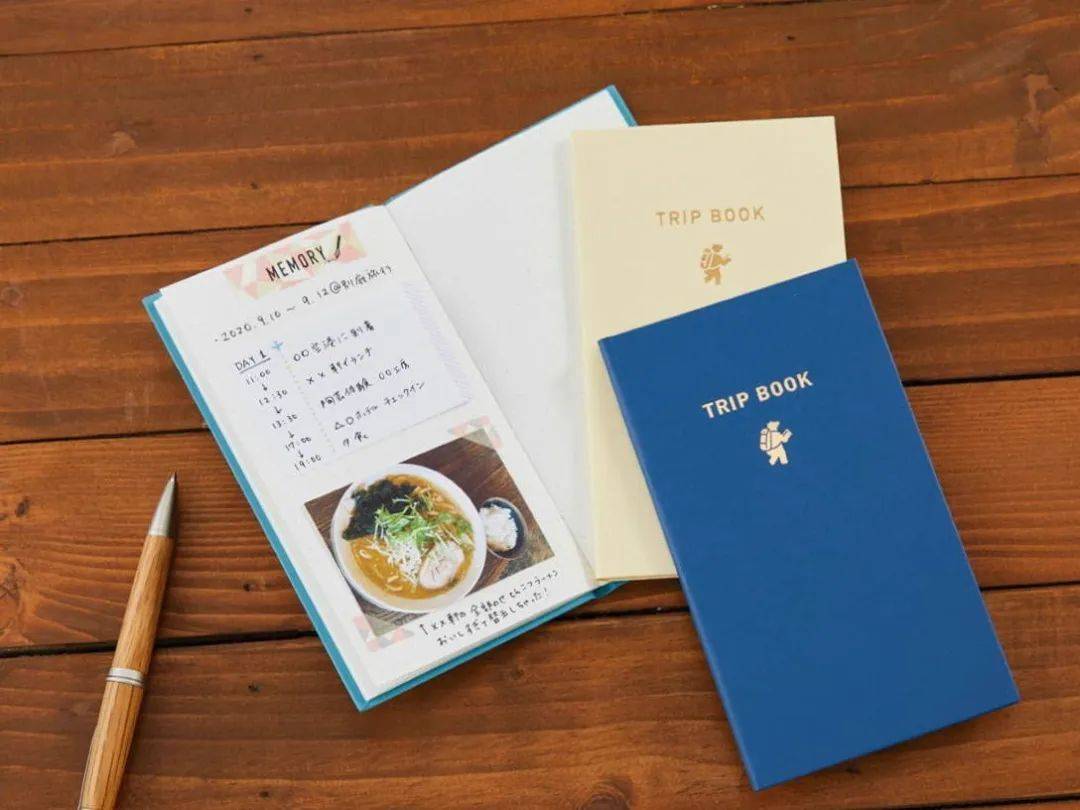 MEMORY
・2020.9.10〜9.12@別府旅行
DAY 1
11:00 〇〇空港に到着
↓
12:30 ××軒でランチ
↓
13:30 陶芸体験 〇〇工房
↓
17:00 △〇ホテル チェックイン
↓
19:00 夕食
↑××軒の 全部のせ とんこつラーメン
おいしすぎて替玉しちゃった!
TRIP BOOK
TRIP BOOK